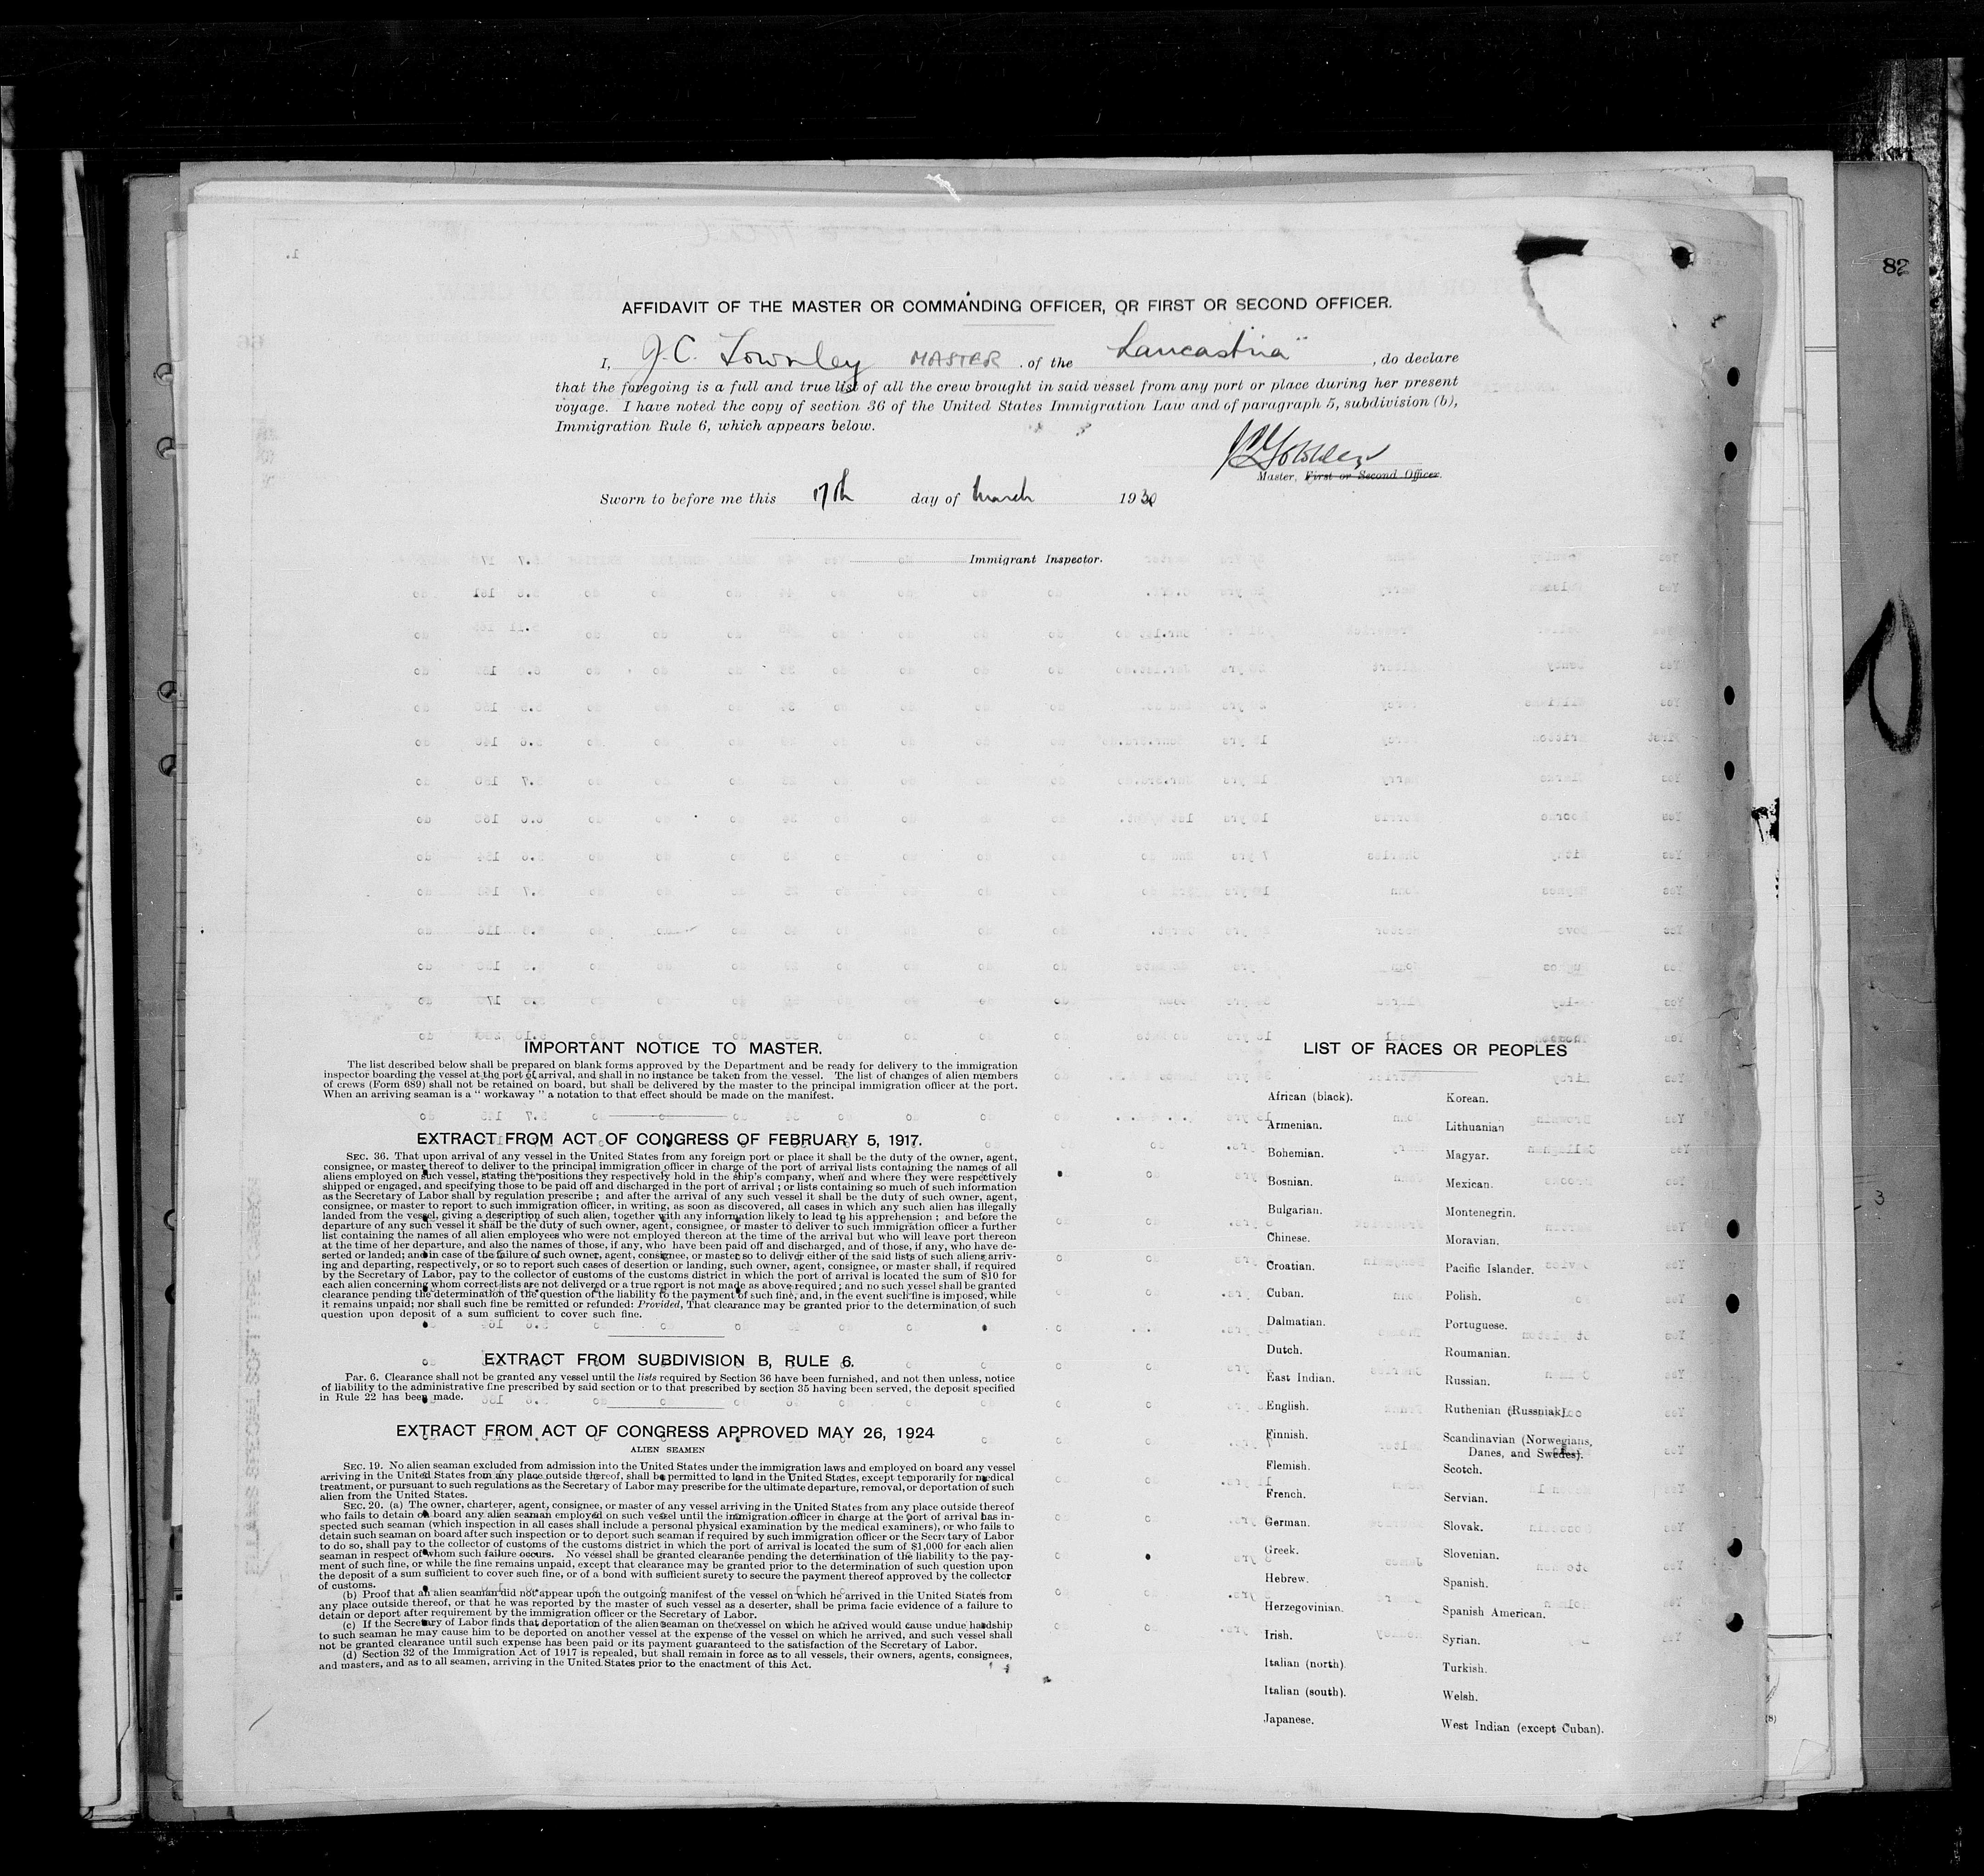 82
AFFIDAVIT OF THE MASTER OR COMMANDING OFFICER, OR FIRST OR SECOND OFFICER.
I, J. C. Townley MASTER, of the "Lancastria", do declare
that the foregoing is a full and true list of all the crew brought in said vessel from any port or place during her present
voyage. I have noted the copy of section 36 of the United States Immigration Law and of paragraph 5, subdivision (b),
Immigration Rule 6, which appears below.
Master, First or Second Officer.
Sworn to before me this 17th day of March 1930
Immigrant Inspector.
IMPORTANT NOTICE TO MASTER.
The list described below shall be prepared on blank forms approved by the Department and be ready for delivery to the immigration
inspector boarding the vessel at the port of arrival, and shall in no instance be taken from the vessel. The list of changes of alien members
of crews (Form 689) shall not be retained on board, but shall be delivered by the master to the principal immigration officer at the port.
When an arriving seaman is a " workaway " a notation to that effect should be made on the manifest.
EXTRACT FROM ACT OF CONGRESS OF FEBRUARY 5, 1917.
SEC. 36. That upon arrival of any vessel in the United States from any foreign port or place it shall be the duty of the owner, agent,
consignee, or master thereof to deliver to the principal immigration officer in charge of the port of arrival lists containing the names of all
aliens employed on such vessel, stating the positions they respectively hold in the ship's company, when and where they were respectively
shipped or engaged, and specifying those to be paid off and discharged in the port of arrival ; or lists containing so much of such information
as the Secretary of Labor shall by regulation prescribe ; and after the arrival of any such vessel it shall be the duty of such owner, agent,
consignee, or master to report to such immigration officer, in writing, as soon as discovered, all cases in which any such alien has illegally
landed from the vessel, giving a description of such alien, together with any information likely to lead to his apprehension ; and before the
departure of any such vessel it shall be the duty of such owner, agent, consignee, or master to deliver to such immigration officer a further
list containing the names of all alien employees who were not employed thereon at the time of the arrival but who will leave port thereon
at the time of her departure, and also the names of those, if any, who have been paid off and discharged, and of those, if any, who have de-
serted or landed; and in case of the failure of such owner, agent, consignee, or master so to deliver either of the said lists of such aliens arriv-
ing and departing, respectively, or so to report such cases of desertion or landing, such owner, agent, consignee, or master shall, if required
by the Secretary of Labor, pay to the collector of customs of the customs district in which the port of arrival is located the sum of $10 for
each alien concerning whom correct lists are not delivered or a true report is not made as above required ; and no such vessel shall be granted
clearance pending the determination of the question of the liability to the payment of such fine, and, in the event such fine is imposed, while
it remains unpaid; nor shall such fine be remitted or refunded: Provided, That clearance may be granted prior to the determination of such
question upon deposit of a sum sufficient to cover such fine.
EXTRACT FROM SUBDIVISION B, RULE 6.
PAR. 6. Clearance shall not be granted any vessel until the lists required by Section 36 have been furnished, and not then unless, notice
of liability to the administrative fine prescribed by said section or to that prescribed by section 35 having been served, the deposit specified
in Rule 22 has been made.
EXTRACT FROM ACT OF CONGRESS APPROVED MAY 26, 1924
ALIEN SEAMEN
SEC. 19. No alien seaman excluded from admission into the United States under the immigration laws and employed on board any vessel
arriving in the United States from any place outside thereof, shall be permitted to land in the United States, except temporarily for medical
treatment, or pursuant to such regulations as the Secretary of Labor may prescribe for the ultimate departure, removal, or deportation of such
alien from the United States.
SEC. 20. (a) The owner, charterer, agent, consignee, or master of any vessel arriving in the United States from any place outside thereof
who fails to detain on board any alien seaman employed on such vessel until the immigration officer in charge at the port of arrival has in-
spected such seaman (which inspection in all cases shall include a personal physical examination by the medical examiners), or who fails to
detain such seaman on board after such inspection or to deport such seaman if required by such immigration officer or the Secretary of Labor
to do so, shall pay to the collector of customs of the customs district in which the port of arrival is located the sum of $1,000 for each alien
seaman in respect of whom such failure occurs. No vessel shall be granted clearance pending the determination of the liability to the pay-
ment of such fine, or while the fine remains unpaid, except that clearance may be granted prior to the determination of such question upon
the deposit of a sum sufficient to cover such fine, or of a bond with sufficient surety to secure the payment thereof approved by the collector
of customs.
(b) Proof that an alien seaman did not appear upon the outgoing manifest of the vessel on which he arrived in the United States from
any place outside thereof, or that he was reported by the master of such vessel as a deserter, shall be prima facie evidence of a failure to
detain or deport after requirement by the immigration officer or the Secretary of Labor.
(c) If the Secretary of Labor finds that deportation of the alien seaman on the vessel on which he arrived would cause undue hardship
to such seaman he may cause him to be deported on another vessel at the expense of the vessel on which he arrived, and such vessel shall
not be granted clearance until such expense has been paid or its payment guaranteed to the satisfaction of the Secretary of Labor.
(d) Section 32 of the Immigration Act of 1917 is repealed, but shall remain in force as to all vessels, their owners, agents, consignees,
and masters, and as to all seamen, arriving in the United States prior to the enactment of this Act.
LIST OF RACES OR PEOPLES
African (black).
Armenian.
Bohemian.
Bosnian.
Bulgarian.
Chinese.
Croatian.
Cuban.
Dalmatian.
Dutch.
East Indian.
English.
Finnish.
Flemish.
French.
German.
Greek.
Hebrew.
Herzegovinian.
Irish.
Italian (north).
Italian (south).
Japanese.
Korean.
Lithuanian
Magyar.
Mexican.
Montenegrin.
Moravian.
Pacific Islander.
Polish.
Portuguese.
Roumanian.
Russian.
Ruthenian (Russniak).
Scandinavian (Norwegians,
Danes, and Swedes).
Scotch.
Servian.
Slovak.
Slovenian.
Spanish.
Spanish American.
Syrian.
Turkish.
Welsh.
West Indian (except Cuban).